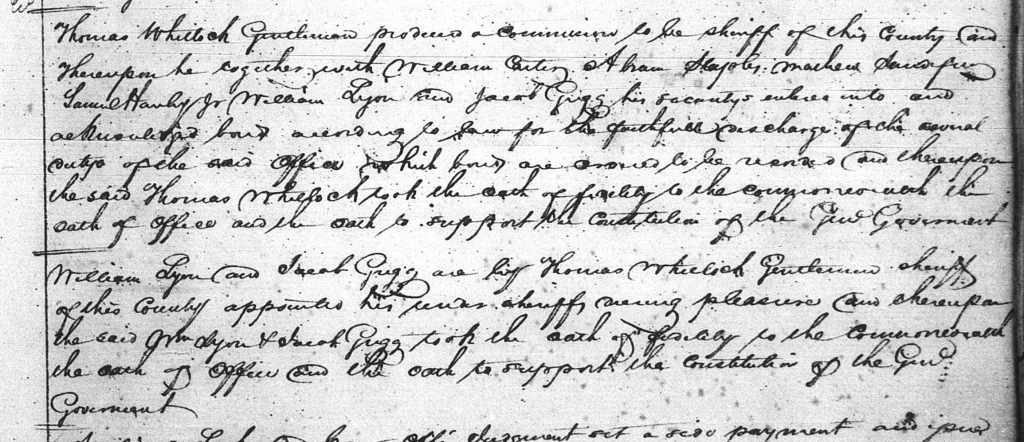 Thomas Whitlock Gentleman produced a Commission to be sheriff of this County and
thereupon he together with William Carter Abram Staples Mathew Sandefur
Samuel Hanby Jr William Lyon and Jacob Grigg his securitys entred into and
acknowledged bond according to Law for the faithfull discharge of the several
dutys of the said Office which bonds are ordered to be recorded and thereupon
the said Thomas Whitlock took the oath of fidelity to the commonwealth the
oath of Office and the oath to support the Constitution of the Genl Government
William Lyon and Jacob Grigg are by Thomas Whitlock Gentleman sheriff
of this County appointed his under sheriffs during pleasure and thereupon
the said Wm Lyon & Jacob Grigg took the oath of fidelity to the Commonwealth
the oath of Office and the oath to support the Constitution of the Genl
Government
Judgment set a side payment and